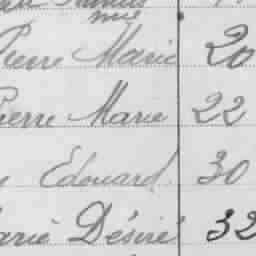 mie
Pierre Marie 20
Pierre Marie 22
Edouard 30
Marie Désiré 32